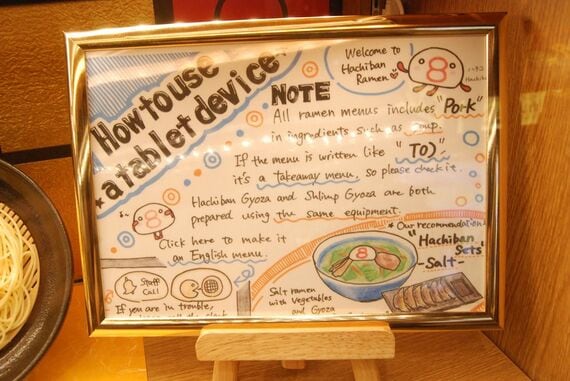 How to use
a tablet device
Welcome to
Hachiban
Ramen
8
NOTE
All ramen menus includes "Pork"
in ingredients such as soup.
If the menu is written like "TO)"
it's a takeaway menu, so please check it.
Hachiban Gyoza and Shlimp Gyoza are both
prepared using the same equipment.
8
Click here to make it
an English menu.
Staff
Call
8
If you are in trouble,
Our recommendation
"Hachiban
Sets"
-Salt-
8
Salt ramen
with Vegetables
and Gyoza